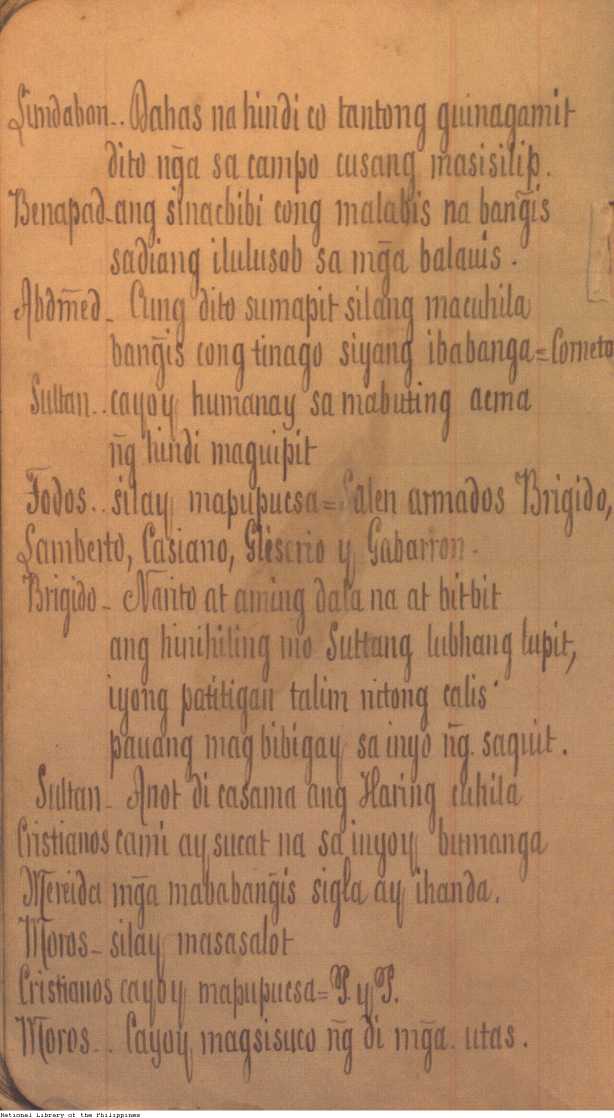 Lindabon.. Dahas na hindi co tantong guinagamit
dito ñga sa campo cusang masisilip.
Benapad - ang sinacbibi cong malabis na bang̃is
sadiang ilulusob sa mg̃a balauis.
Abdm̃ed - Cung dito sumapit silang macuhila
bang̃is cong tinago siyang ibabanga = Corneta
Sultan.. cayoy humanay sa mabuting acma
ñg hindi maguipit
Todos.. silay mapupucsa = Salen armados Brigido,
Lamberto, Casiano, Gleserio y Gabarron.
Brigido - Narito at aming dala na at bitbit
ang hinihiling mo Sultang lubhang lupit,
iyong patitigan talim nitong calis
pauang magbibigay sa inyo ñg. saquit.
Sultan - Anot di casama ang Haring cuhila
Cristianos cami ay sucat na sa inyoy bumanga
Mereida mg̃a mababang̃is sigla ay ihanda.
Moros - silay masasalot
Cristianos cayoy mapupucsa = P. y P.
Moros.. Cayoy magsisuco ñg di mg̃a. utas.
National Library of the Philippines